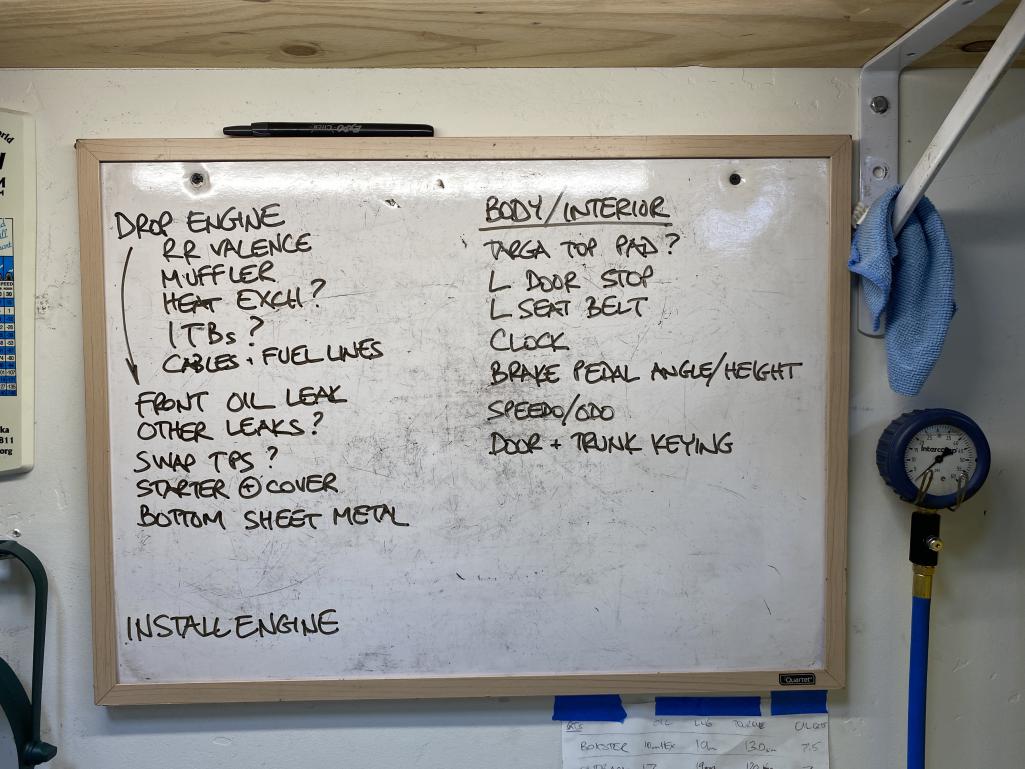 EXPO
DROP ENGINE
RR VALENCE
MUFFLER
HEAT EXCH?
ITBs?
CABLES + FUEL LINES
FRONT OIL LEAK
OTHER LEAKS?
SWAP TPS?
STARTER ⊕ COVER
BOTTOM SHEET METAL
INSTALL ENGINE
BODY/INTERIOR
TARGA TOP PAD?
L DOOR STOP
L SEAT BELT
CLOCK
BRAKE PEDAL ANGLE/HEIGHT
SPEEDO/ODO
DOOR + TRUNK KEYING
Quartet
Intercomp
SPEED
OIL LUG TORQUE
BOXSTER 10mm HEX 19mm 7.5